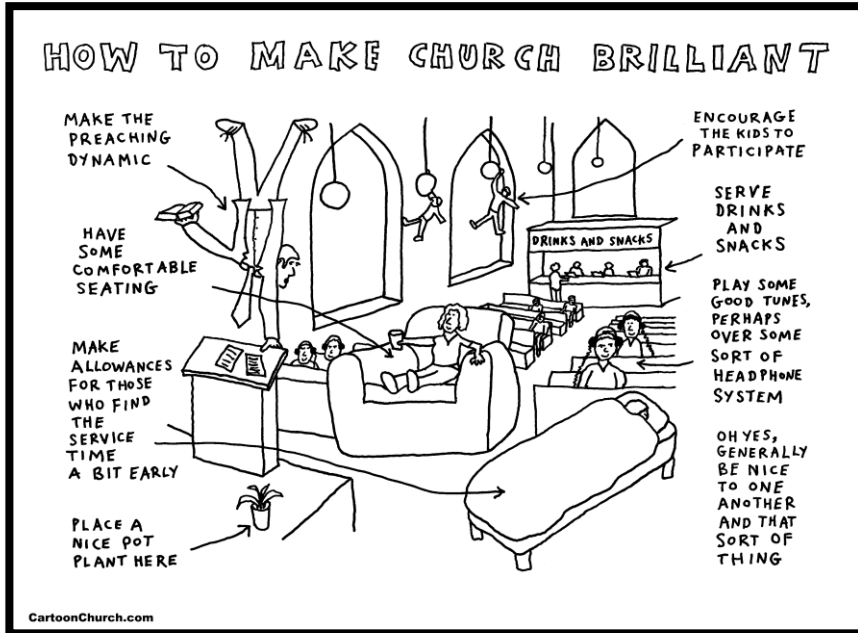 HOW TO MAKE CHURCH BRILLIANT
MAKE THE
PREACHING
DYNAMIC
HAVE
SOME
COMFORTABLE
SEATING
MAKE
ALLOWANCES
FOR THOSE
WHO FIND
THE
SERVICE
TIME
A BIT EARLY
PLACE A
NICE POT
PLANT HERE
DRINKS AND SNACKS
ENCOURAGE
THE KIDS TO
PARTICIPATE
SERVE
DRINKS
AND
SNACKS
PLAY SOME
GOOD TUNES,
PERHAPS
OVER SOME
SORT OF
HEADPHONE
SYSTEM
OH YES,
GENERALLY
BE NICE
TO ONE
ANOTHER
AND THAT
SORT OF
THING
CartoonChurch.com